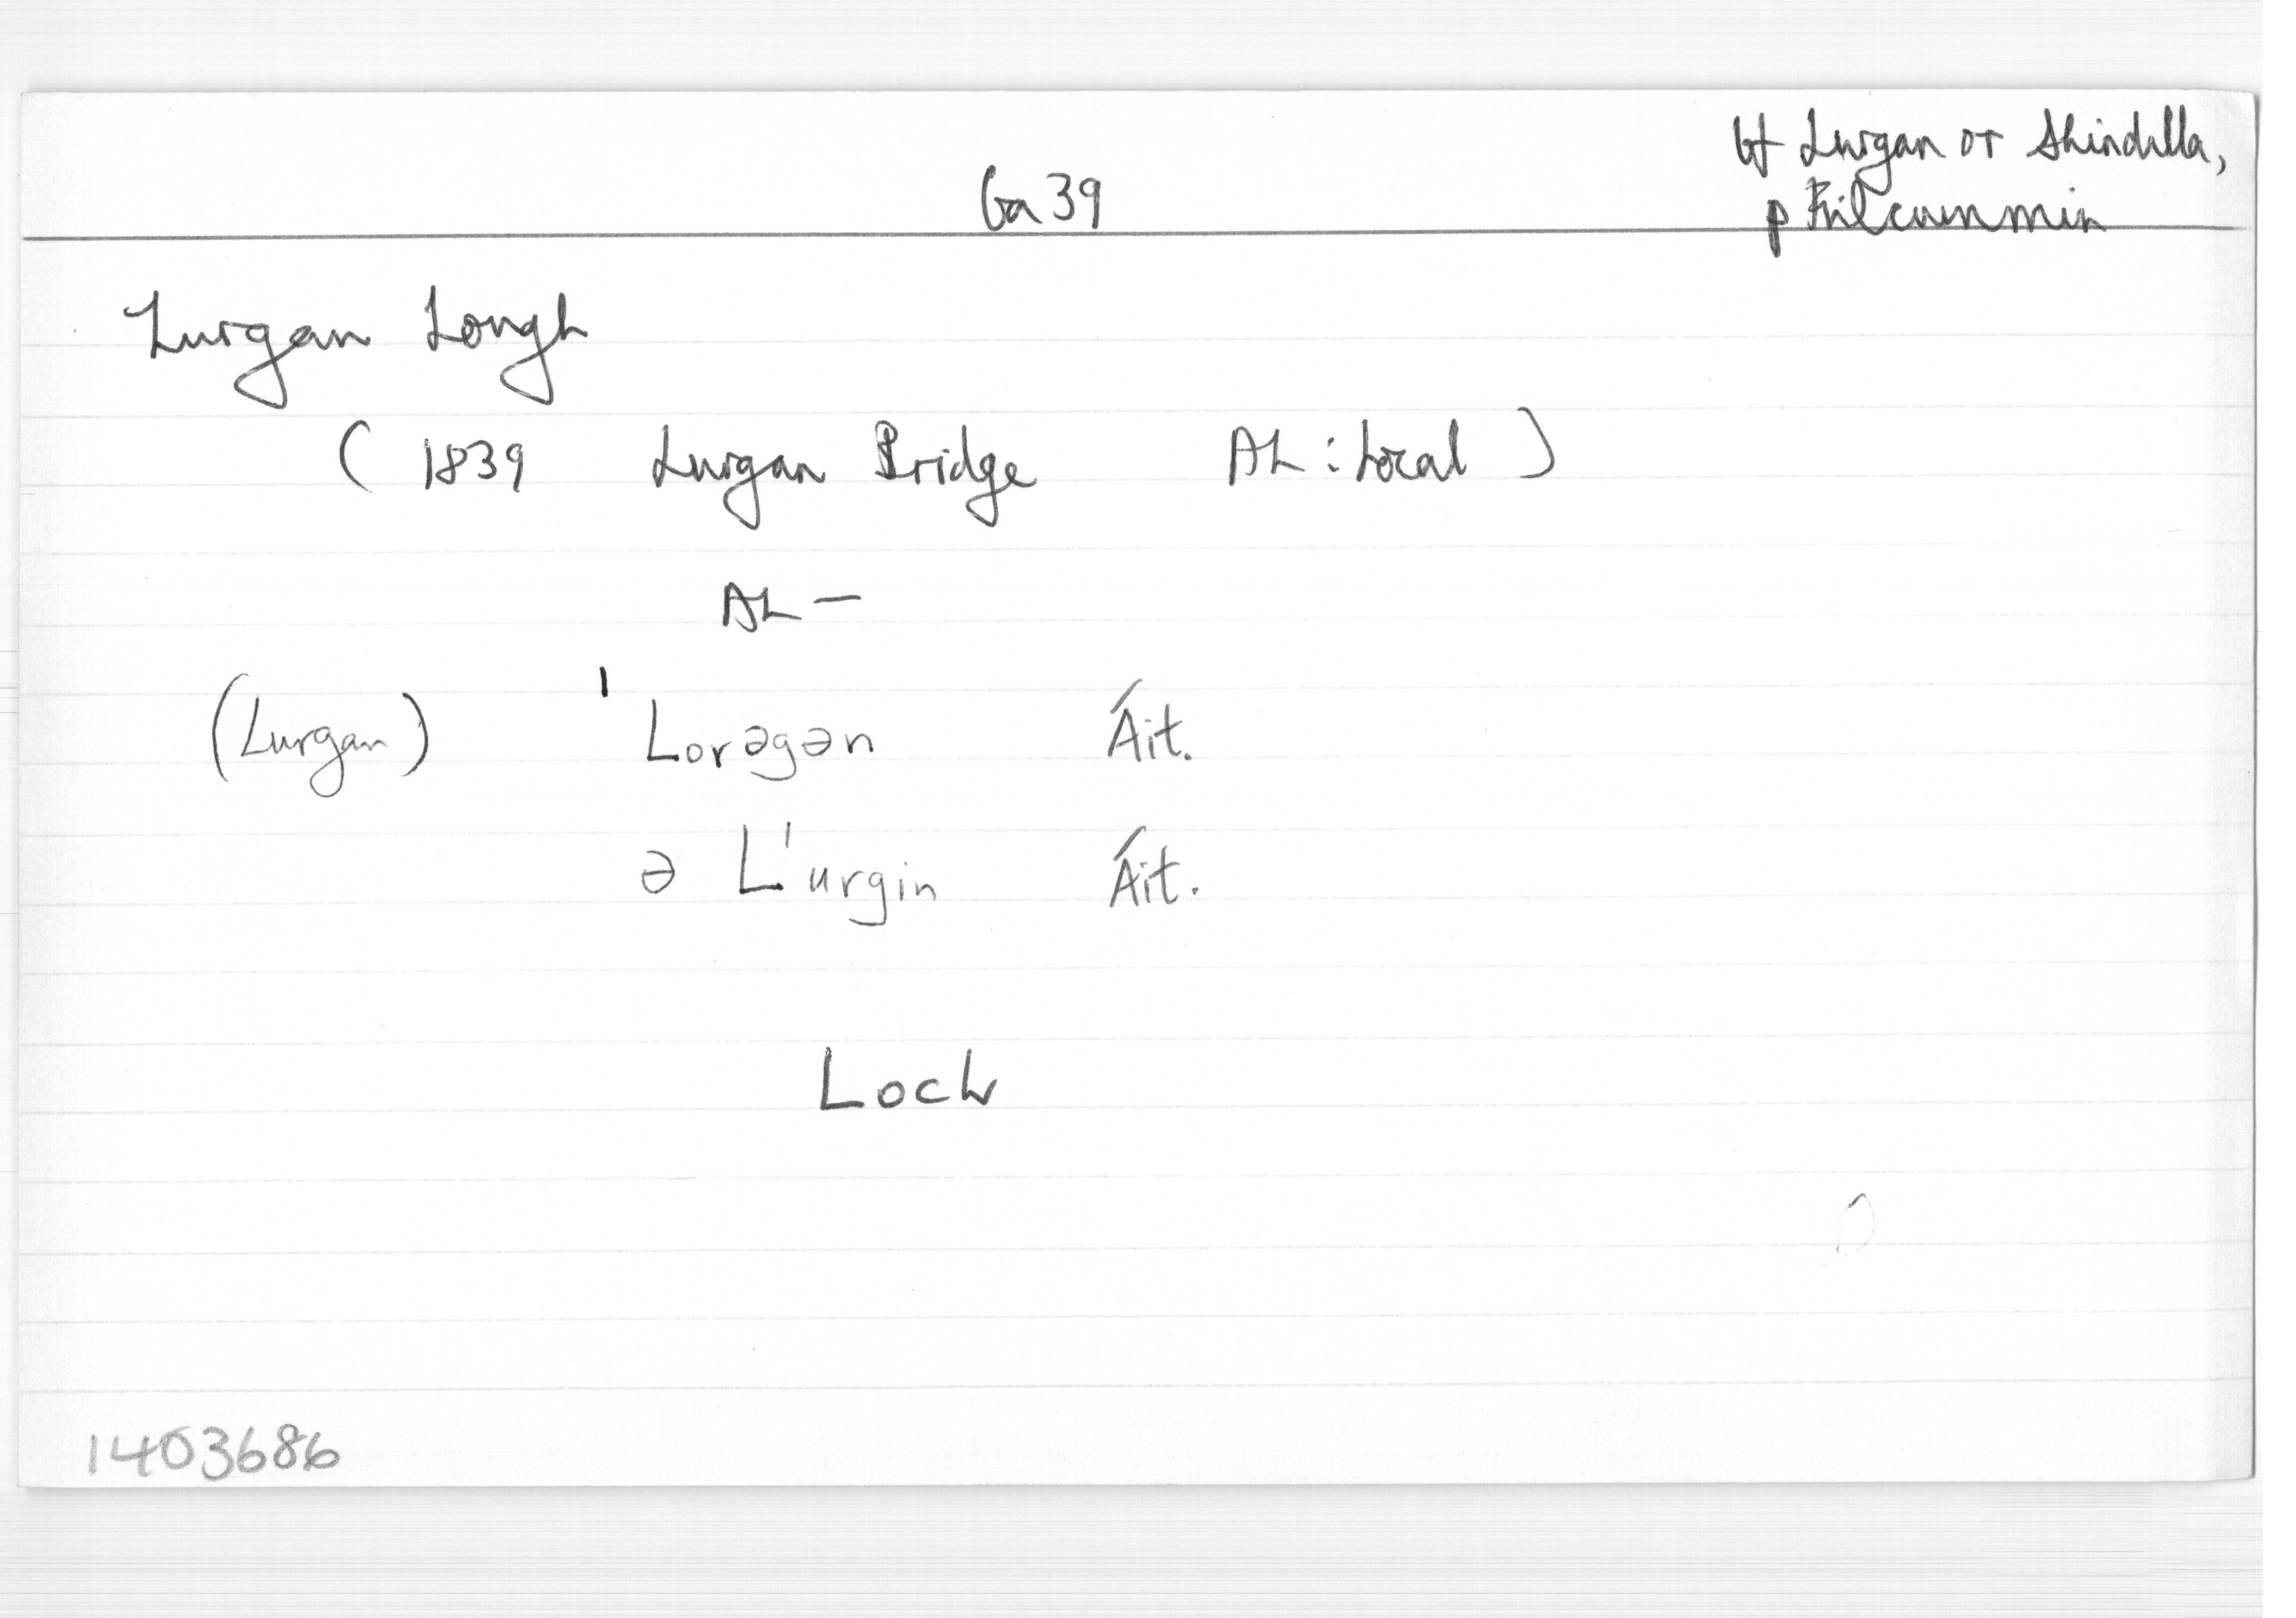 bf Lurgan or Shindilla,
Ga 39
p Kilcummin
Lurgan Lough
( 1839 Lurgan Bridge AL : Local )
AL —
(Lurgan) ˈLorəgən Áit.
ə L'urgin Áit.
Loch
1403686